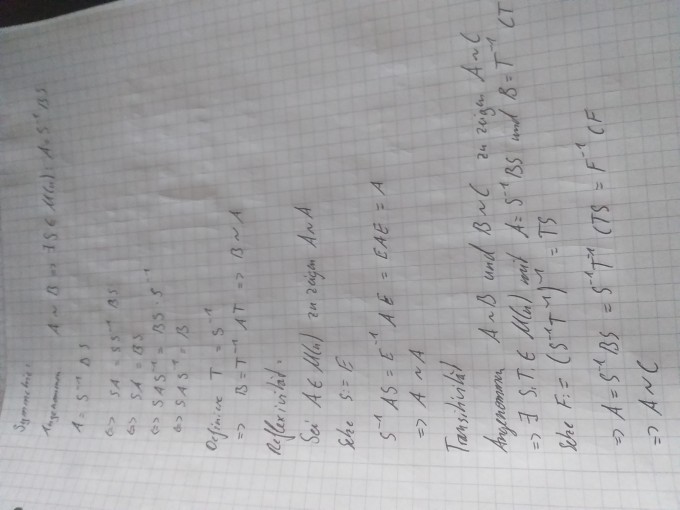 Symmetrie:
Angenommen A ~ B => ∃ S ∈ M(n) : A = S⁻¹ BS
A = S⁻¹ BS
<=> SA = SS⁻¹ BS
<=> SA = BS
<=> SAS⁻¹ = BS · S⁻¹
<=> SAS⁻¹ = B
Definiere T = S⁻¹
=> B = T⁻¹ AT => B ~ A
Reflexivität:
Sei A ∈ M(n) zu zeigen A ~ A
Setze S = E
S⁻¹ AS = E⁻¹ AE = EAE = A
=> A ~ A
Transitivität
Angenommen A ~ B und B ~ C zu zeigen A ~ C
=> ∃ S,T ∈ M(n) mit A = S⁻¹ BS und B = T⁻¹ CT
Setze F := (S⁻¹T⁻¹)⁻¹ = TS
=> A = S⁻¹ BS = S⁻¹T⁻¹ CTS = F⁻¹ CF
=> A ~ C